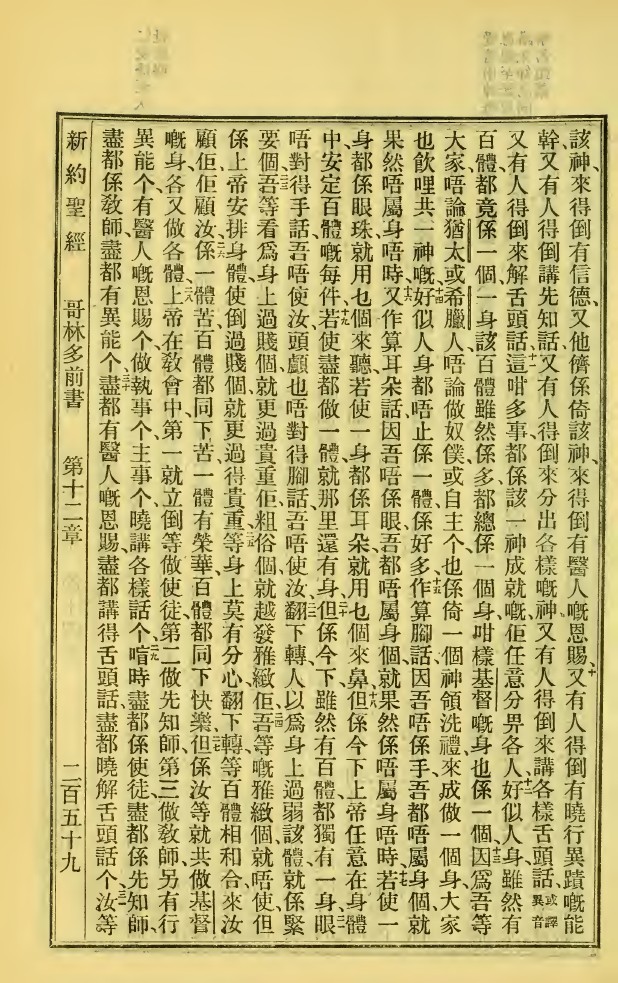 該神、來得倒有信德、又他儕係倚該神、來得倒有醫人嘅恩賜、十又有人得倒有曉行異蹟嘅能
幹、又有人得倒講先知話、十一又有人得倒來分出各樣嘅神、又有人得倒來講各樣舌頭話、或譯異音
又有人得倒來解舌頭話、這咁多事都係該一神成就嘅、佢任意分畀各人、十二好似人身雖然有
百體、都竟係一個、一身該百體、雖然係多、都總係一個身、咁樣基督嘅身也係一個、十三因爲吾等
大家唔論猶太或希臘人、唔論做奴僕或自主个、也係倚一個神領洗禮、來成做一個身、大家
也飲哩共一神嘅、十四好似人身都唔止係一體、係好多、十五作算腳話、因吾唔係手、吾都唔屬身個、就
果然唔屬身唔時、十六又作算耳朵話、因吾唔係眼、吾都唔屬身個、就果然係唔屬身唔時、十七若使一
身都係眼珠、就用乜個來聽、若使一身都係耳朵、就用乜個來鼻、十八但係今下上帝任意在身體
中、安定百體嘅每件、十九若使盡都做一體、就那里還有身、二十但係今下、雖然有百體、都獨有一身、二一眼
唔對得手話、吾唔使汝、頭顱也唔對得腳話、吾唔使汝、二二翻下轉、人以爲身上過弱該體、就係緊
要個、二三吾等看爲身上過賤個、就更過貴重佢、粗俗個、就越發雅緻佢、二四吾等嘅雅緻個、就唔使、但
係上帝安排身體、使倒過賤個、就更過得貴重、二五等身上莫有分心、翻下轉、等百體相和合、來汝
顧佢、佢顧汝、二六係一體苦、百體都同下苦、一體有榮華、百體都同下快樂、二七但係汝等就共做基督
嘅身、各又做各體、二八上帝在教會中、第一就立倒等做使徒、第二做先知師、第三做教師、另有行
異能个、有醫人嘅恩賜个、做執事个、主事个、曉講各樣話个、二九喑時盡都係使徒、盡都係先知師、
盡都係教師、盡都有異能个、三十盡都有醫人嘅恩賜、盡都講得舌頭話、盡都曉解舌頭話个、三一汝等
新約聖經 哥林多前書 第十二章 二百五十九